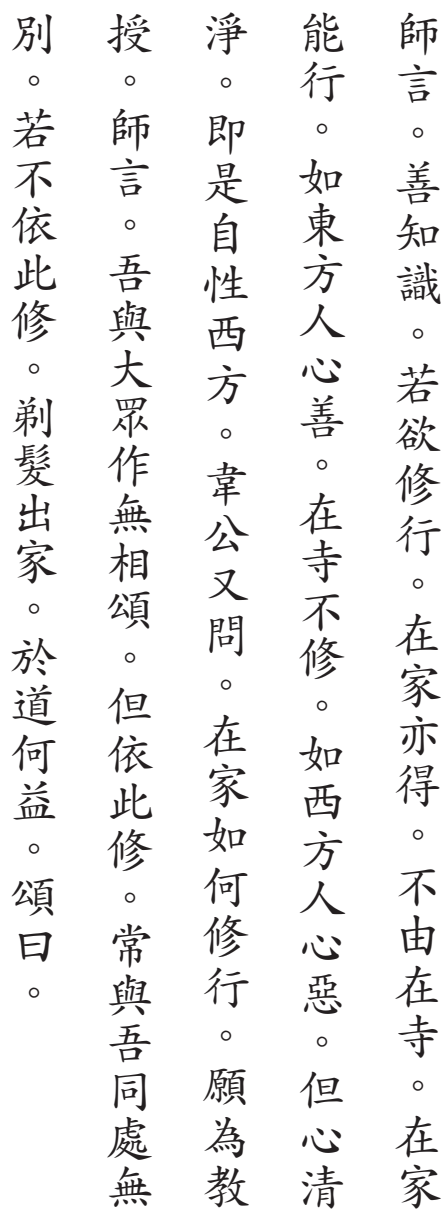 師言。善知識。若欲修行。在家亦得。不由在寺。在家
能行。如東方人心善。在寺不修。如西方人心惡。但心清
淨。即是自性西方。韋公又問。在家如何修行。願為教
授。師言。吾與大眾作無相頌。但依此修。常與吾同處無
別。若不依此修。剃髮出家。於道何益。頌曰。